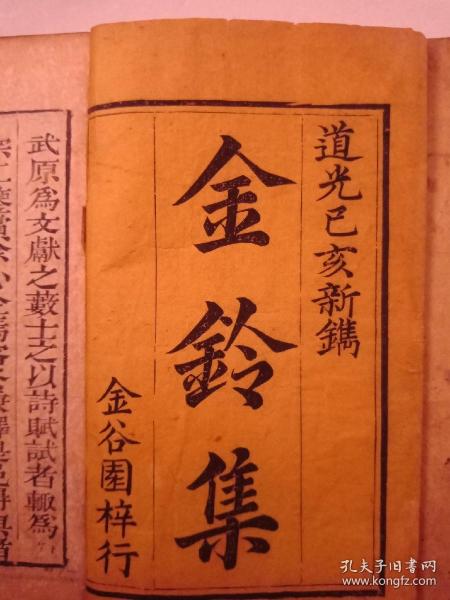 道光己亥新鐫
金鈴集
金谷園梓行
武原爲文獻之藪士之以詩賦試者輙爲
孔夫子旧书网
www.kongfz.com